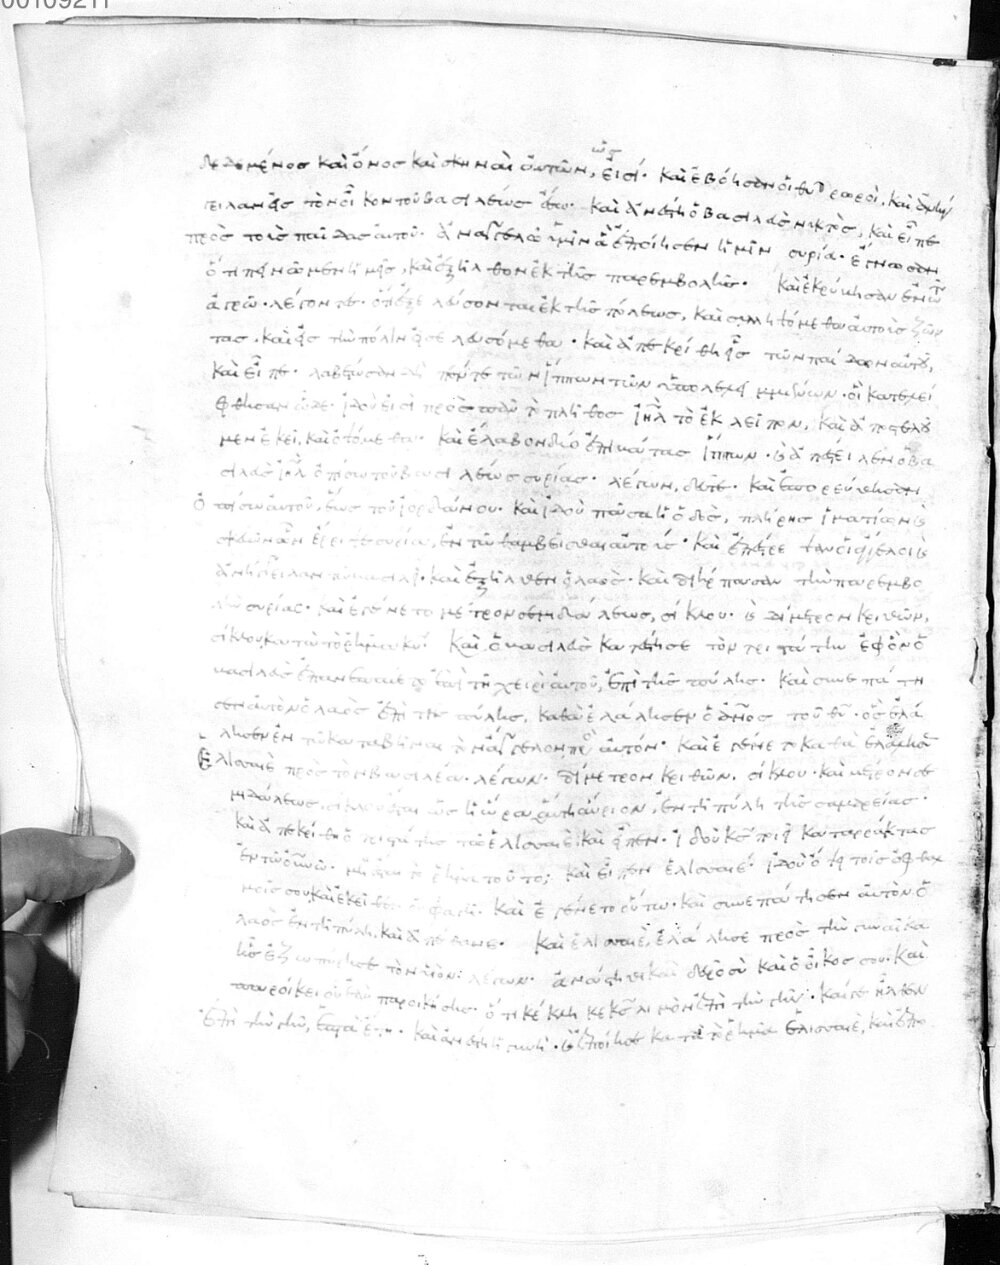 00109211
δεδεμένος καὶ ὄνος καὶ σκηναὶ αὐτῶν, ὥς εἰσί. καὶ ἐβόησαν οἱ θυρωροὶ, καὶ ἀνήγ
γειλαν εἰς τὸν οἶκον τοῦ βασιλέως ἔσω. καὶ ἀνέστη ὁ βασιλεὺς νυκτὸς, καὶ εἶπε
πρὸς τοὺς παῖδας αὐτοῦ. ἀναγγελῶ ὑμῖν ἃ ἐποίησεν ἡμῖν συρία. ἔγνωσαν
ὅτι πεινῶμεν ἡμεῖς, καὶ ἐξῆλθον ἐκ τῆς παρεμβολῆς. καὶ ἐκρύβησαν ἐν τῷ
ἀγρῷ. λέγοντες. ὅτι ἐξελεύσονται ἐκ τῆς πόλεως, καὶ συλληψόμεθα αὐτοὺς ζῶν
τας. καὶ εἰς τὴν πόλιν εἰσελευσόμεθα. καὶ ἀπεκρίθη εἷς τῶν παίδων αὐτοῦ,
καὶ εἶπε. λαβέτωσαν δὴ πέντε τῶν ἵππων τῶν ὑπολελειμμένων. οἳ κατελεί
φθησαν ὧδε. ἰδού εἰσι πρὸς πᾶν τὸ πλῆθος ἰηλ τὸ ἐκλεῖπον, καὶ ἀποστελοῦ
μεν ἐκεῖ, καὶ ὀψόμεθα. καὶ ἔλαβον δύο ἐπιβάτας ἵππων. καὶ ἀπέστειλεν ὁ βα
σιλεὺς ἰηλ ὀπίσω τοῦ βασιλέως συρίας. λέγων, δεῦτε. καὶ ἐπορεύθησαν
ὀπίσω αὐτοῦ, ἕως τοῦ ἰορδάνου. καὶ ἰδοὺ πᾶσα ἡ ὁδὸς, πλήρης ἱματίων καὶ
σκευῶν ὧν ἔρριψε συρία, ἐν τῷ θαμβεῖσθαι αὐτούς. καὶ ἐπέστρεψαν οἱ ἄγγελοι καὶ
ἀνήγγειλαν τῷ βασιλεῖ. καὶ ἐξῆλθεν ὁ λαὸς. καὶ διήρπασαν τὴν παρεμβο
λὴν συρίας. καὶ ἐγένετο μέτρον σεμιδάλεως, σίκλου. καὶ δίμετρον κριθῶν,
σίκλου κατὰ τὸ ῥῆμα κυ. καὶ ὁ βασιλεὺς κατέστησε τὸν τριστάτην ἐφ' ὃν ὁ
βασιλεὺς ἐπανεπαύετο ἐπὶ τῇ χειρὶ αὐτοῦ, ἐπὶ τῆς πύλης. καὶ συνεπάτη
σεν αὐτὸν ὁ λαὸς ἐπὶ τῆς πύλης, καθὰ ἐλάλησεν ὁ ἄνος τοῦ θυ. ὃς ἐλά
λησεν ἐν τῷ καταβῆναι τὸν ἄγγελον πρὸς αὐτόν. καὶ ἐγένετο καθὰ ἐλάλησεν
ἐλισσαιὲ πρὸς τὸν βασιλέα. λέγων. δίμετρον κριθῶν, σίκλου. καὶ μέτρον σε
μιδάλεως, σίκλου ἔσται ὡς ἡ ὥρα αὕτη αὔριον, ἐν τῇ πύλῃ τῆς σαμαρείας.
καὶ ἀπεκρίθη ὁ τριστάτης τῷ ἐλισσαιὲ καὶ εἶπεν. ἰδοὺ κς ποιεῖ καταρράκτας
ἐν τῷ οὐνῷ. μὴ ἔσται τὸ ῥῆμα τοῦτο; καὶ εἶπεν ἐλισσαιέ. ἰδοὺ ὄψῃ τοῖς ὀφθαλ
μοῖς σου, καὶ ἐκεῖθεν οὐ φάγῃ. καὶ ἐγένετο οὕτω. καὶ συνεπάτησεν αὐτὸν ὁ
λαὸς ἐν τῇ πύλῃ, καὶ ἀπέθανε. καὶ ἐλισσαιὲ, ἐλάλησε πρὸς τὴν γυναῖκα
ἧς ἐζωπύρησε τὸν υἱὸν. λέγων. ἀνάστηθι καὶ δεῦρο σὺ καὶ ὁ οἶκος σου. καὶ
παροίκει οὗ ἐὰν παροικήσῃς. ὅτι κέκληκε κς λιμὸν ἐπὶ τὴν γῆν. καί γε ἦλθεν
ἐπὶ τὴν γῆν, ἑπτὰ ἔτη. καὶ ἀνέστη ἡ γυνὴ. καὶ ἐποίησε κατὰ τὸ ῥῆμα ἐλισσαιὲ, καὶ ἐπο